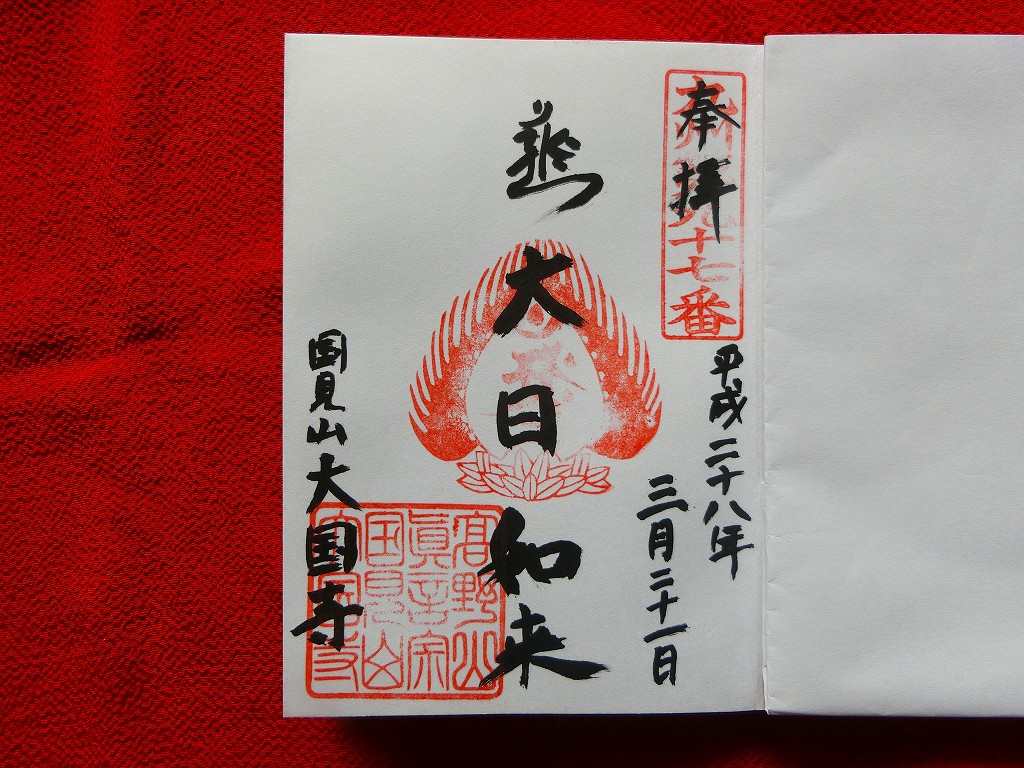 奉拝
十七番
平成二十八年
三月二十一日
大日如来
国見山大国寺
高野山
眞言宗
国見山